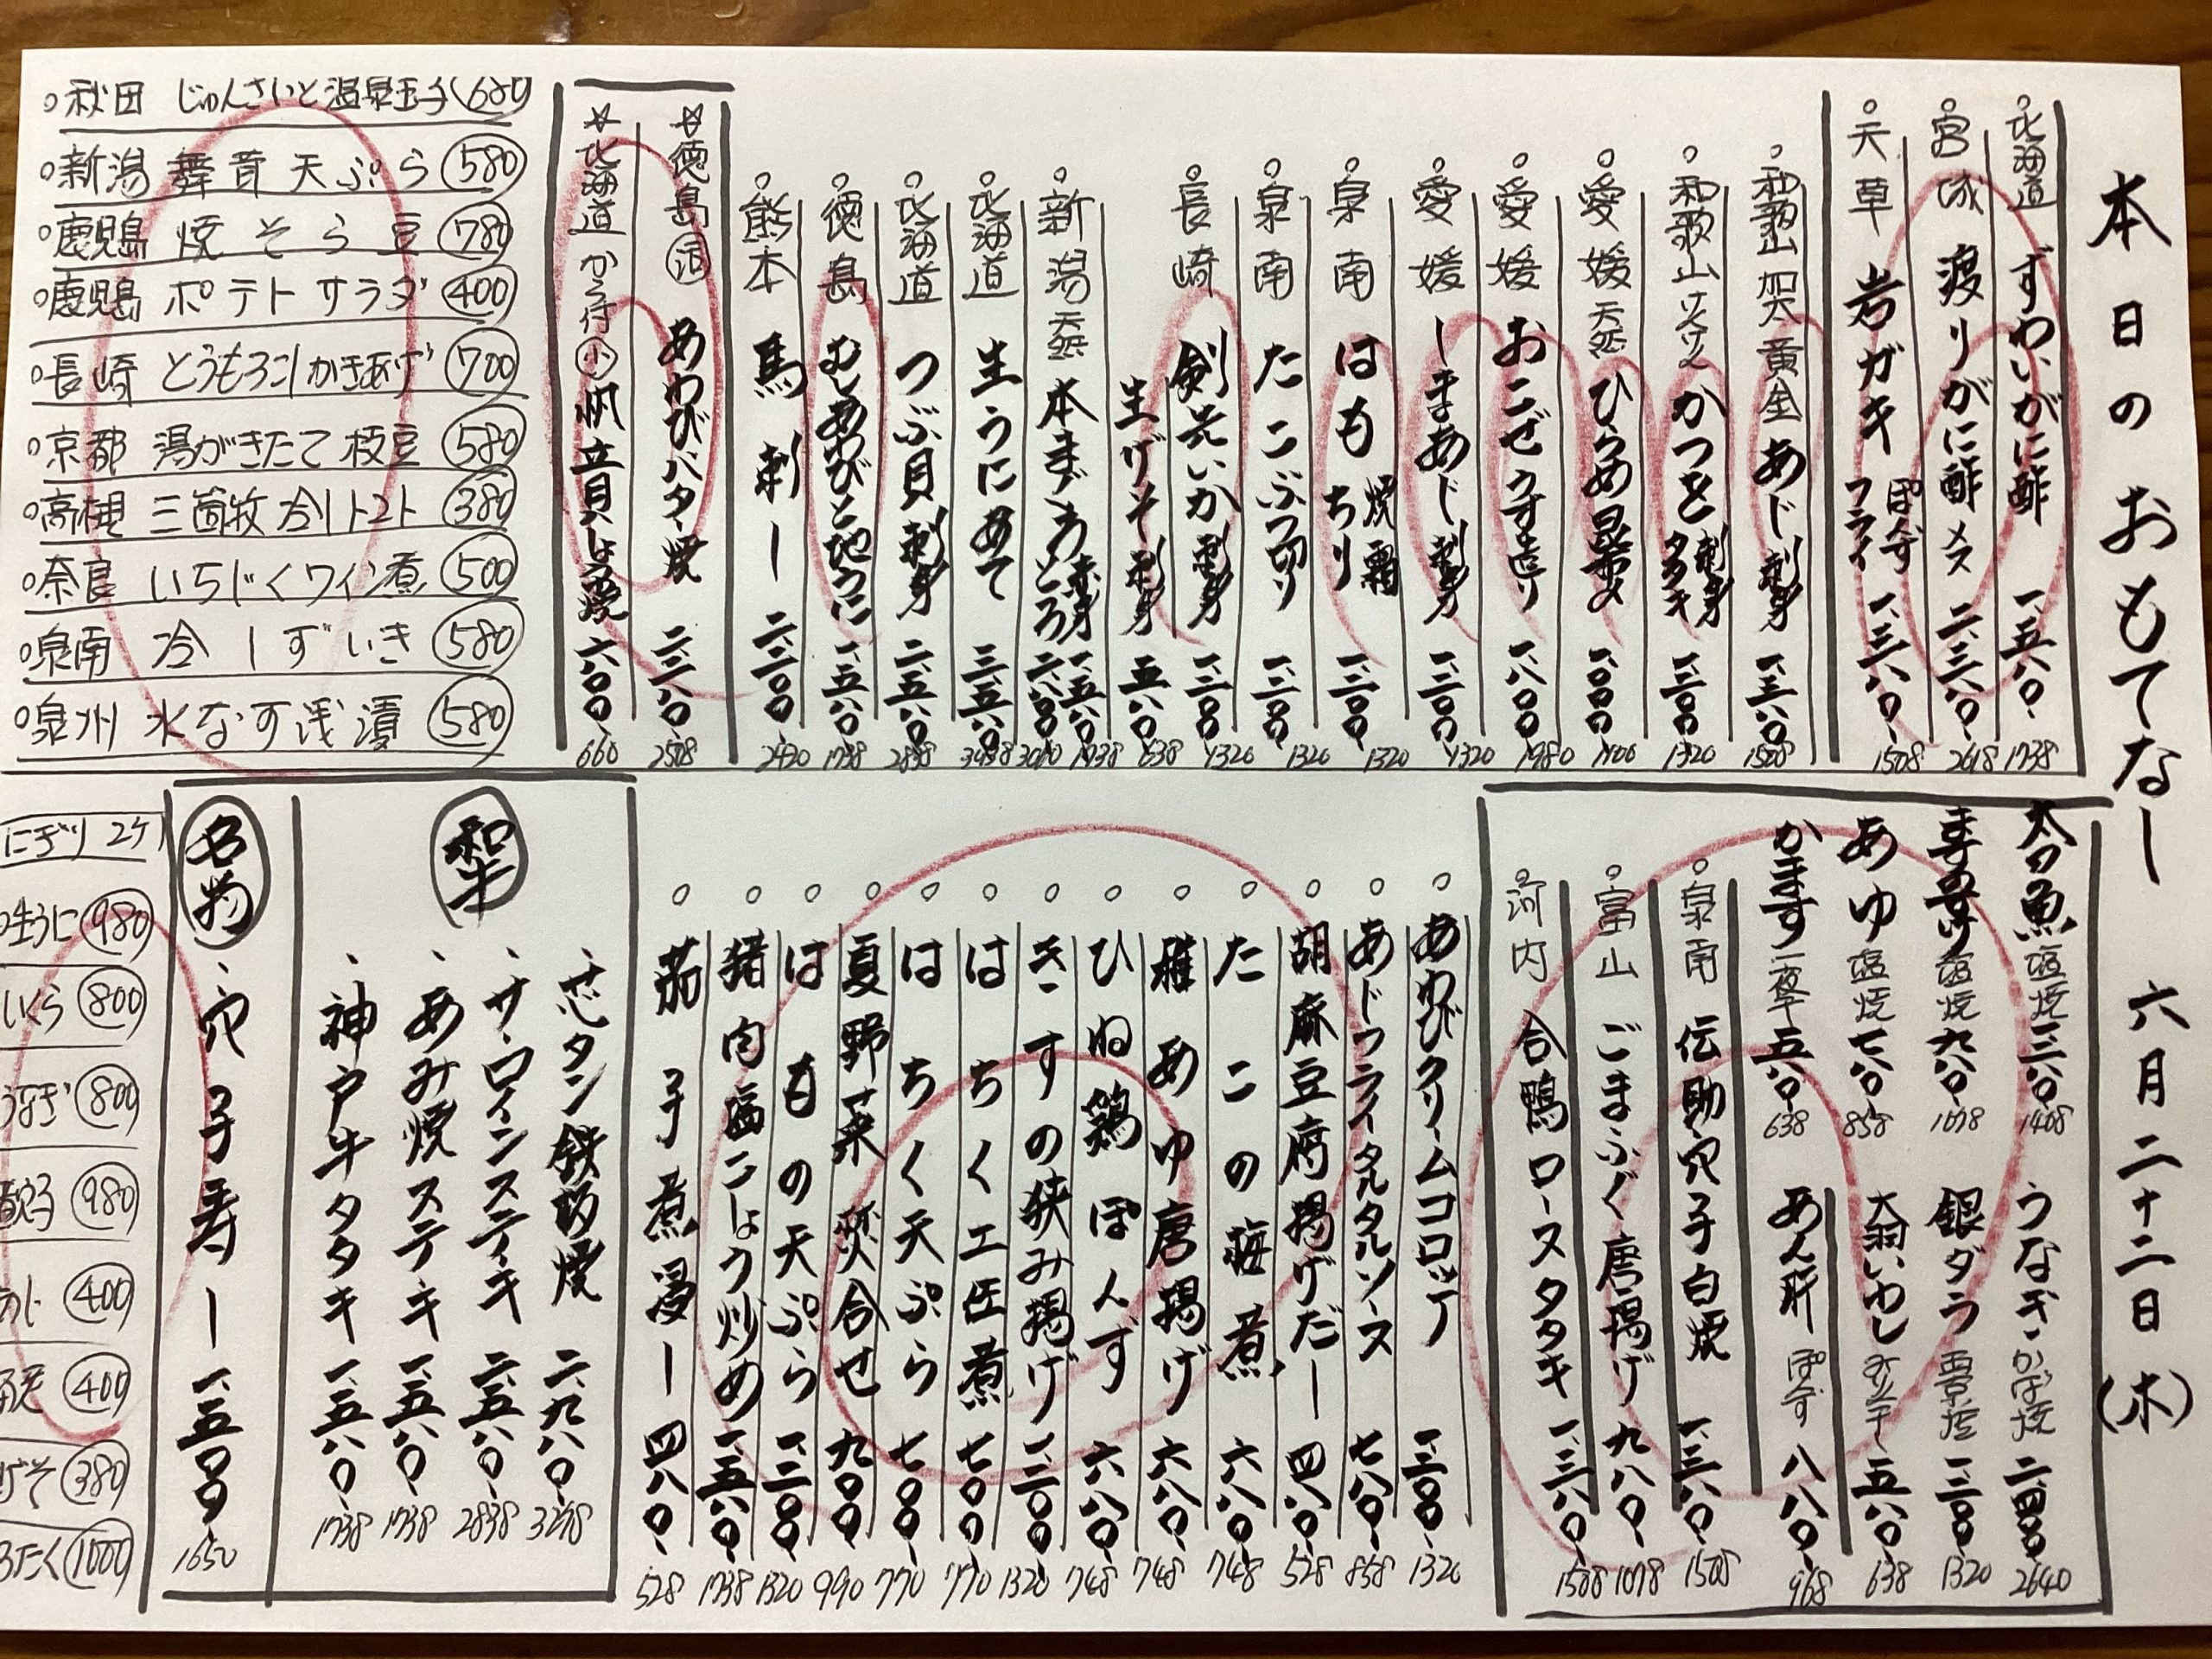 本日のおもてなし 六月二十二日(木)
北海道 ずわいがに酢 一、五八〇 1738
宮城 渡りがに酢 メス 二、三八〇 2618
天草 岩ガキ ぽんず フライ 一、三八〇 1508
和歌山 加太 黄金あじ 刺身 一、三八〇 1508
和歌山 けんけん かつを 刺身 タタキ 一、二〇〇 1320
愛媛 天然 ひらめ昆布〆 一、〇〇〇 1100
愛媛 おこぜうす造り 一、八〇〇 1980
愛媛 しまあじ 刺身 一、二〇〇 1320
泉南 はも 焼霜 ちり 一、二〇〇 1320
泉南 たこぶつ切り 一、二〇〇 1320
長崎 剣先いか 刺身 一、二〇〇 1320
生げそ 刺身 五八〇 638
新潟 天然 本まぐろ 赤身 一、五八〇 1738
とろ 二、八〇〇 3080
北海道 生うにあて 三、五八〇 3938
北海道 つぶ貝 刺身 二、五八〇 2838
徳島 むしあわびと地うに 一、五八〇 1738
熊本 馬刺し 二、二〇〇 2420
☆徳島 活 あわびバター焼 二、二八〇 2508
☆北海道 から付 小 帆立貝しょうゆ焼 六〇〇 660
秋田 じゅんさいと温泉玉子 680
新潟 舞茸天ぷら 580
鹿児島 焼そら豆 780
鹿児島 ポテトサラダ 400
長崎 とうもろこしかきあげ 700
京都 湯がきたて枝豆 580
高槻 三箇牧 冷しトマト 380
奈良 いちじくワイン煮 500
泉南 冷しずいき 580
泉州 水なす浅漬 580
太刀魚 塩焼 一、二八〇 1408
塩焼 九八〇 1078
あゆ 塩焼 七八〇 858
かます 一夜干 五八〇 638
うなぎ かば焼 二、四〇〇 2640
銀ダラ 西京焼 一、二〇〇 1320
大羽いわし 五八〇 638
あん肝 ぽんず 八八〇 968
泉南 伝助穴子白焼 一、三八〇 1508
富山 ごまふぐ唐揚げ 九八〇 1078
河内 合鴨ロースタタキ 一、三八〇 1508
あわびクリームコロッケ 一、二〇〇 1320
あじフライタルタルソース 七八〇 858
胡麻豆腐揚げだし 四八〇 528
たこの梅煮 六八〇 748
稚あゆ唐揚げ 六八〇 748
ひね鶏ぽんず 六八〇 748
きすの挟み揚げ 一、二〇〇 1320
はちく土佐煮 七〇〇 770
はちく天ぷら 七〇〇 770
夏野菜 焚合せ 九〇〇 990
はもの天ぷら 一、二〇〇 1320
猪肉塩こしょう炒め 一、五八〇 1738
茄子煮浸し 四八〇 528
和牛
芯タン鉄板焼 二、九八〇 3278
サーロインステーキ 二、五八〇 2838
あみ焼ステーキ 一、五八〇 1738
神戸牛タタキ 一、五八〇 1738
名物
穴子寿し 一、五〇〇 1650
にぎり 2ケ
生うに 980
いくら 800
うなぎ 800
980
400
400
げそ 380
1000